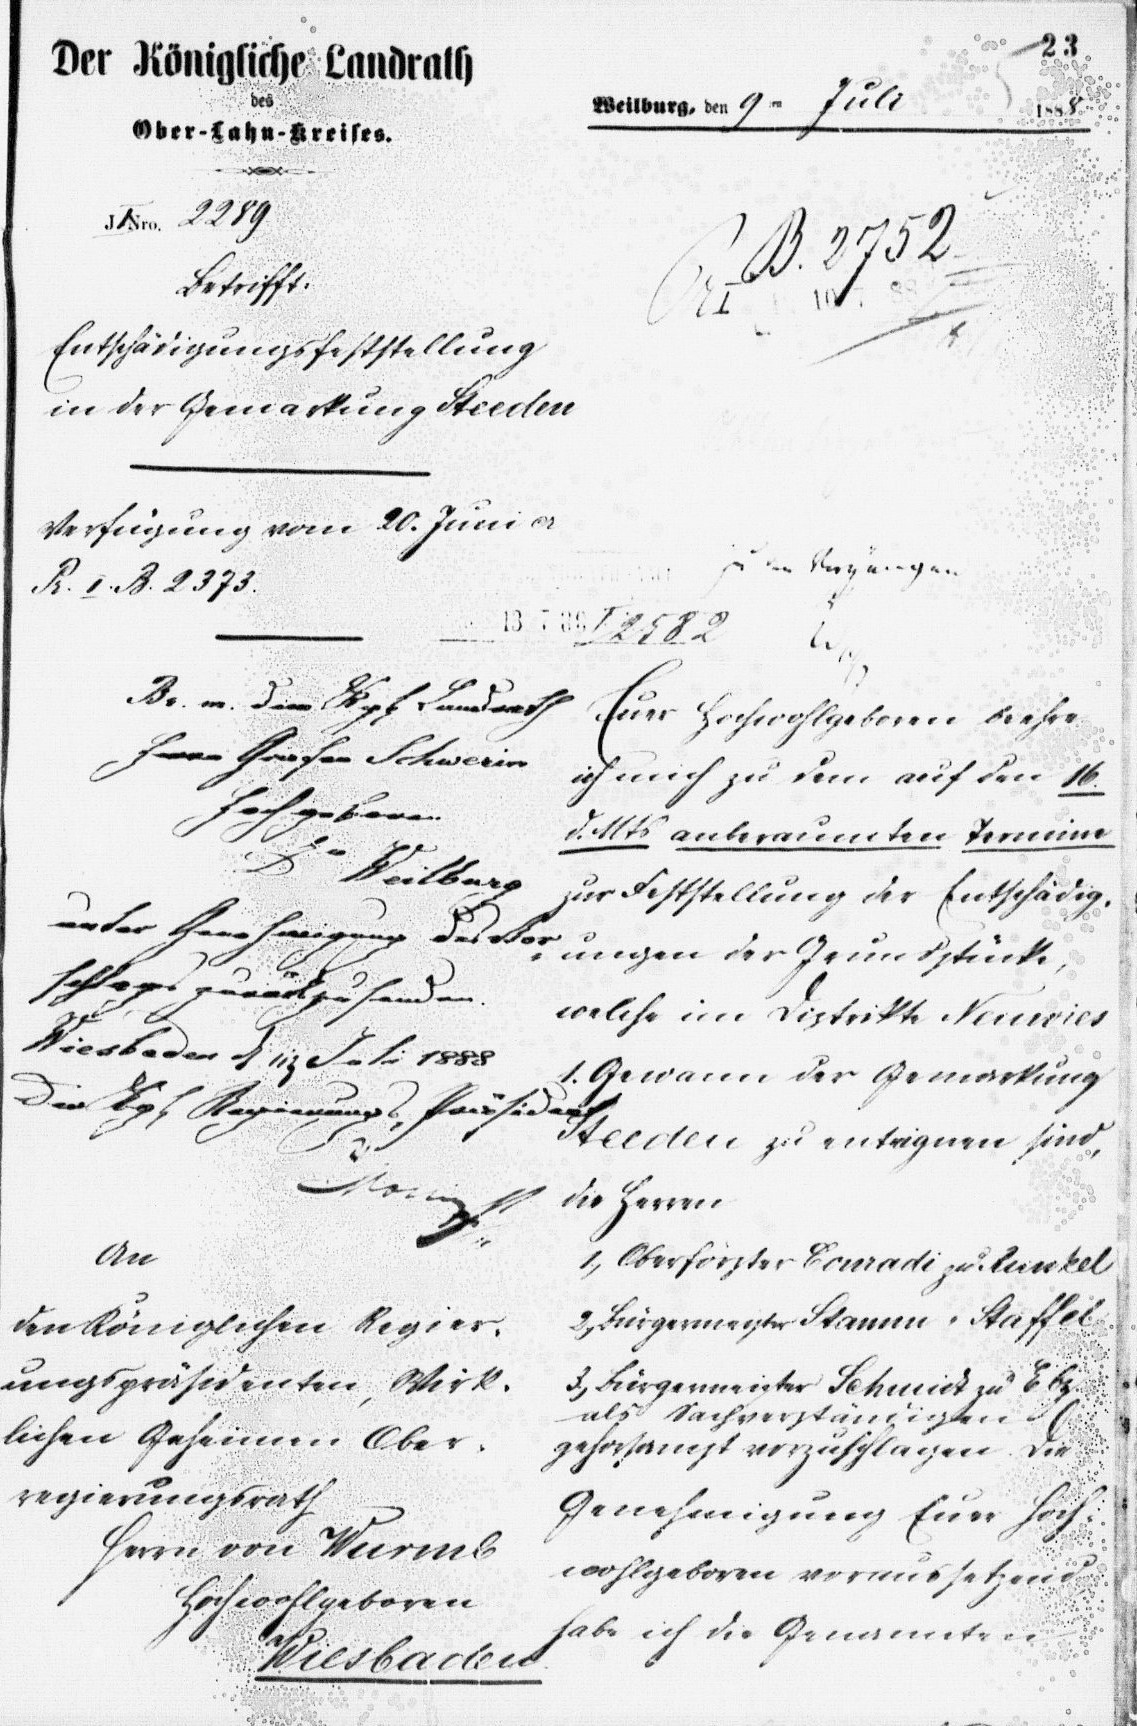 23
Der Königliche Landrath
des
Ober-Lahn-Kreises.
Weilburg, den 9ten Juli 1888
J. Nro. 2289
Pr. I B. 2752
Betrifft.
Entschädigungsfeststellung
in der Gemarkung Steeden
Verfügung vom 20. Juni cr
Pr. I. B. 2373.
zu den Vorgängen
13 7 88 I 2582
Br. m. dem Kgl Landrath
Herrn Grafen Schwerin
Hochgeboren
Zu Weilburg
unter Genehmigung des Vor-
schlags zurückzusenden.
Wiesbaden d 11 Juli 1888
Der Kgl Regierungs-Präsident
An
den Königlichen Regier-
ungspräsidenten, Wirk-
lichen Geheimen Ober-
regierungsrath
Herrn von Wurmb
Hochwohlgeboren
Wiesbaden
Euer Hochwohlgeboren beehre
ich mich zu dem auf den 16.
d. Mts anberaumten Termine
zur Feststellung der Entschädig-
ungen der Grundstücke,
welche im Distrikte Neuwies
1. Gewann der Gemarkung
Steeden zu enteignen sind,
die Herren
1, Oberförster Conradi zu Runkel
2, Bürgermeister Stamm " Staffel
3, Bürgermeister Schmidt zu Elz
als Sachverständigen
gehorsamst vorzuschlagen. Die
Genehmigung Euer Hoch-
wohlgeboren voraussetzend,
habe ich die Genannten